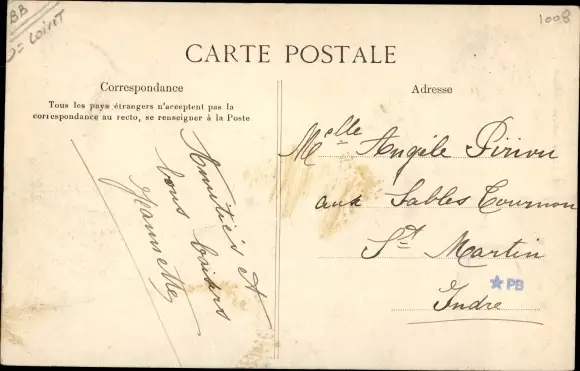 BB
D= LOIRET
1008
CARTE POSTALE
Correspondance
Tous les pays étrangers n'acceptent pas la
correspondance au recto, se renseigner à la Poste
Amitiés et
bons baisers
Adresse
Melle Angèle Pirion
aux Sables Tournon
St Martin
Indre
PB